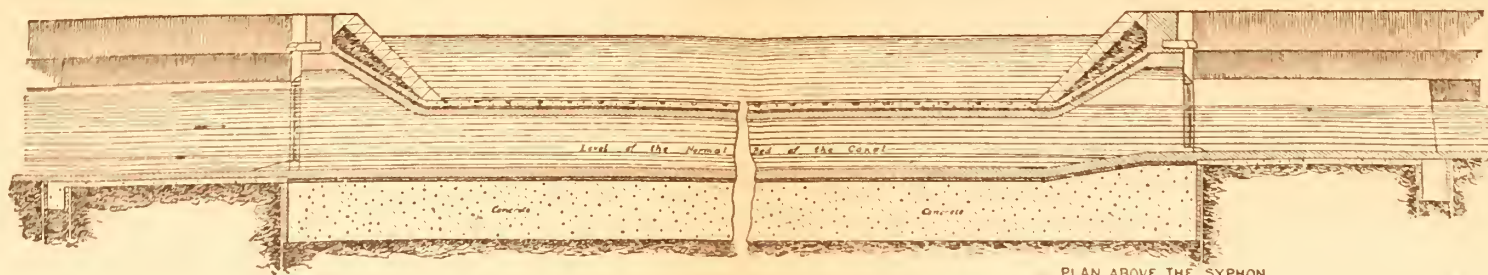 Level of the Normal Bed of the Canal
Concrete
Concrete
PLAN ABOVE THE SYPHON